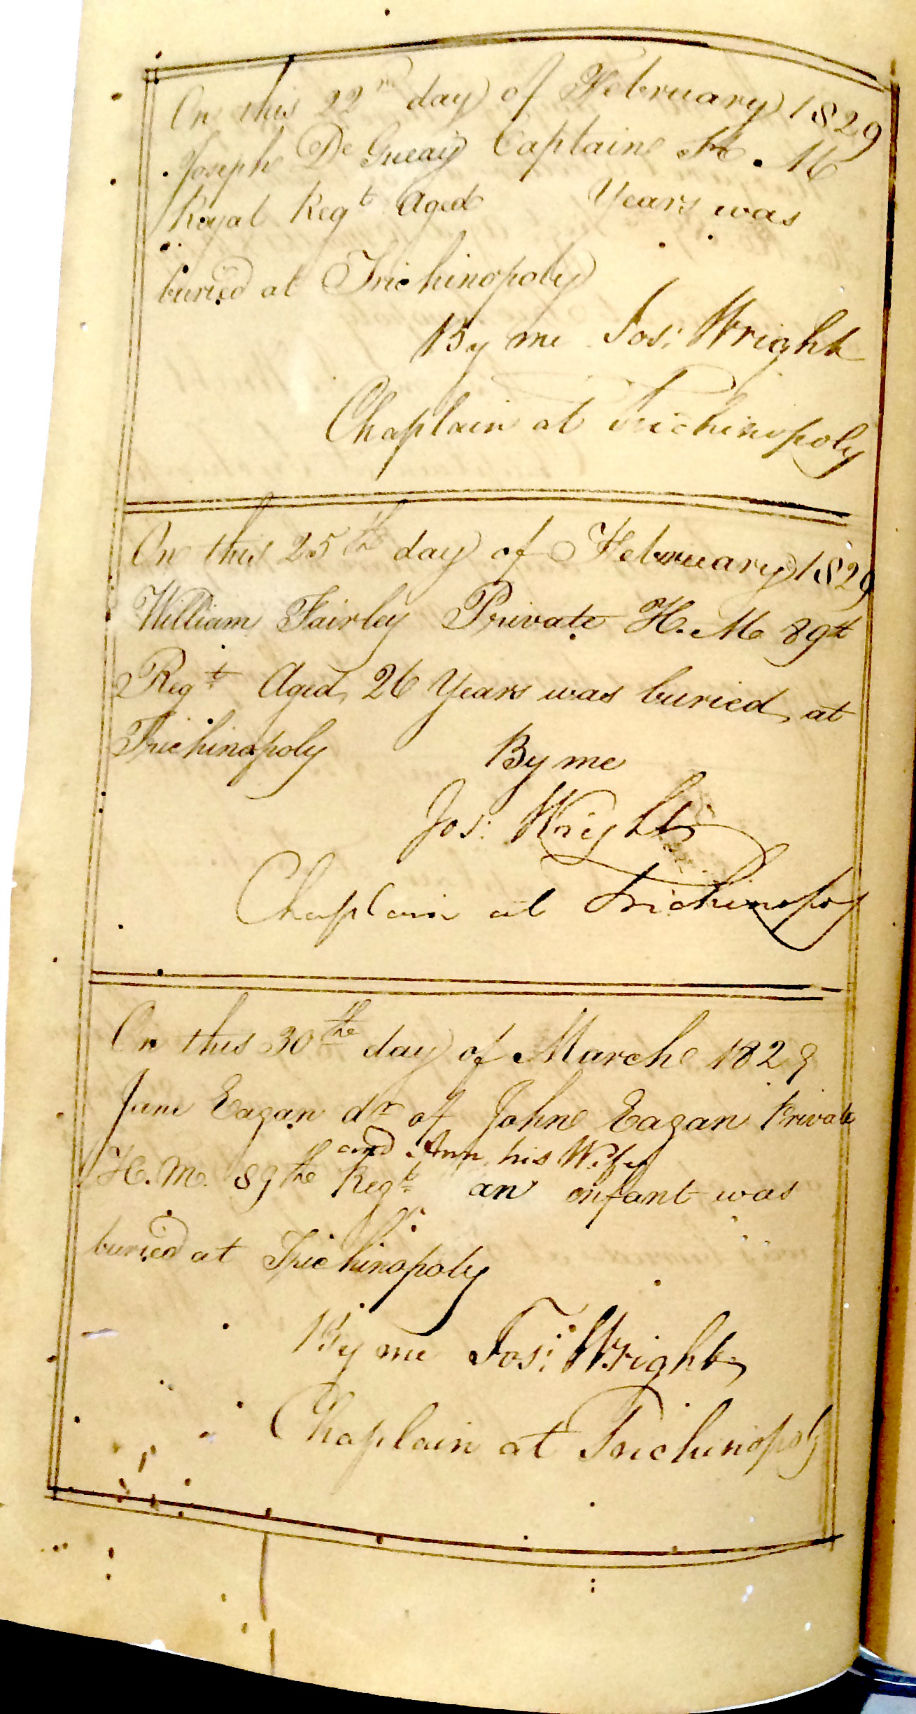 On this 22nd day of February 1829
Joseph De Gueay Captain H. M
Royal Regt Aged Years was
buried at Trichinopoly
By me Jos: Wright
Chaplain at Trichinopoly
On this 25th day of February 1829
William Fairley Private H. M. 89th
Regt Aged 26 Years was buried at
Trichinopoly By me
Jos: Wright
Chaplain at Trichinopoly
On this 30th day of March 1829
Jane Eagan dr of John Eagan Private
and Ann his Wife
H. M. 89th Regt an infant was
buried at Trichinopoly
By me Jos: Wright
Chaplain at Trichinopoly